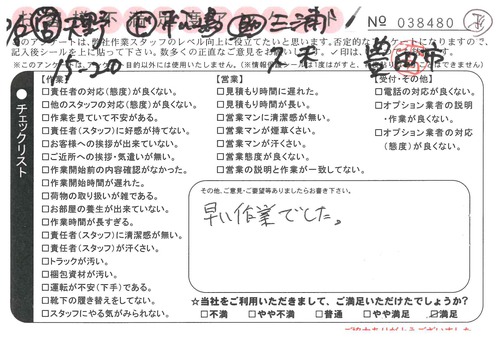 № 038480
このアンケートは、当社作業スタッフのレベル向上に役立てたいと思います。否定的なアンケートになりますので、
記入後シールを上に貼って下さい。数多くの正直なご意見をお願いします。
豊田市
15-20
チェックリスト
【作業】
□責任者の対応(態度)が良くない。
□他のスタッフの対応(態度)が良くない。
□作業を見ていて不安がある。
□責任者(スタッフ)に好感が持てない。
□お客様への挨拶が出来ていない。
□ご近所への挨拶・気遣いが無い。
□作業開始前の内容確認がなかった。
□作業開始時間が遅れた。
□荷物の取り扱いが雑である。
□お部屋の養生が出来ていない。
□作業時間が長すぎる。
□責任者(スタッフ)に清潔感が無い。
□責任者(スタッフ)が汗くさい。
□トラックが汚い。
□梱包資材が汚い。
□運転が不安(下手)である。
□靴下の履き替えをしてない。
□スタッフにやる気がみられない。
【営業】
□見積もり時間に遅れた。
□見積もり時間が長い。
□営業マンに清潔感が無い。
□営業マンが煙草くさい。
□営業マンが汗くさい。
□営業態度が良くない。
□営業の説明と作業が一致してない。
【受付・その他】
□電話の対応が良くない。
□オプション業者の説明
・作業が良くない。
□オプション業者の対応
(態度)が良くない。
その他、ご意見・ご要望等ありましたらお書き下さい。
早い作業でした。
☆当社をご利用いただきまして、ご満足いただけたでしょうか?
□不満 □やや不満 □普通 □やや満足 ☑満足
ご協力ありがとうございました